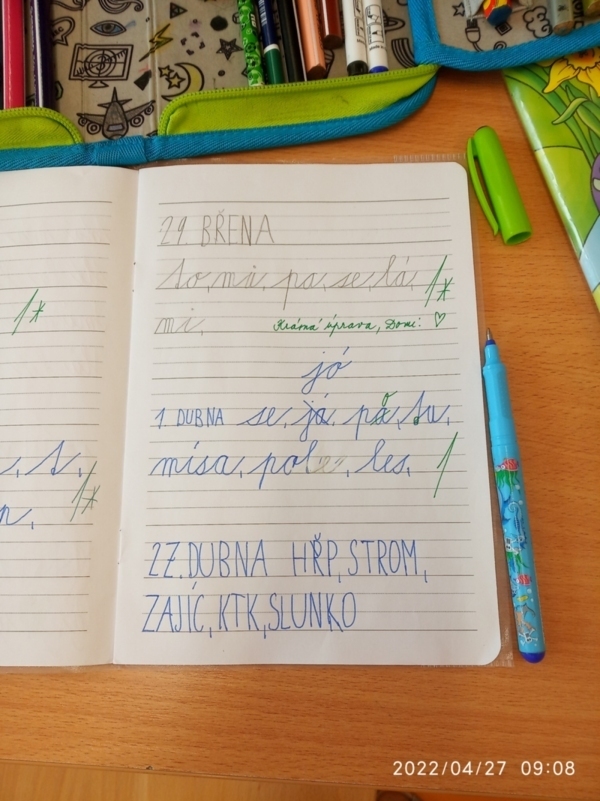 29. BŘENA
to, mi, pa, se, lá,
1*
1*
mi,
Krásná úprava, Domi! ♡
jó
1 DUBNA se, já, pá, tu,
mísa, pole, les, 1
, t,
1*
n,
27. DUBNA HŘP, STROM,
ZAJÍC, KTK, SLUNKO
2022/04/27 09:08